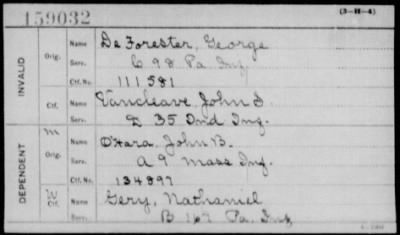 159032
(3-H-4)
INVALID
Orig.
Name De Forester, George
Serv. C 98 Pa. Inf.
Ctf. No. 111581
Ctf.
Name Vancleave, John S.
Serv. D 35 Ind Inf.
DEPENDENT
M
Orig.
Name O'Hara, John B.
Serv. A 9 Mass Inf.
Ctf. No. 134897
W
Ctf.
Name Gery, Nathaniel
Serv. B 167 Pa. Inf.